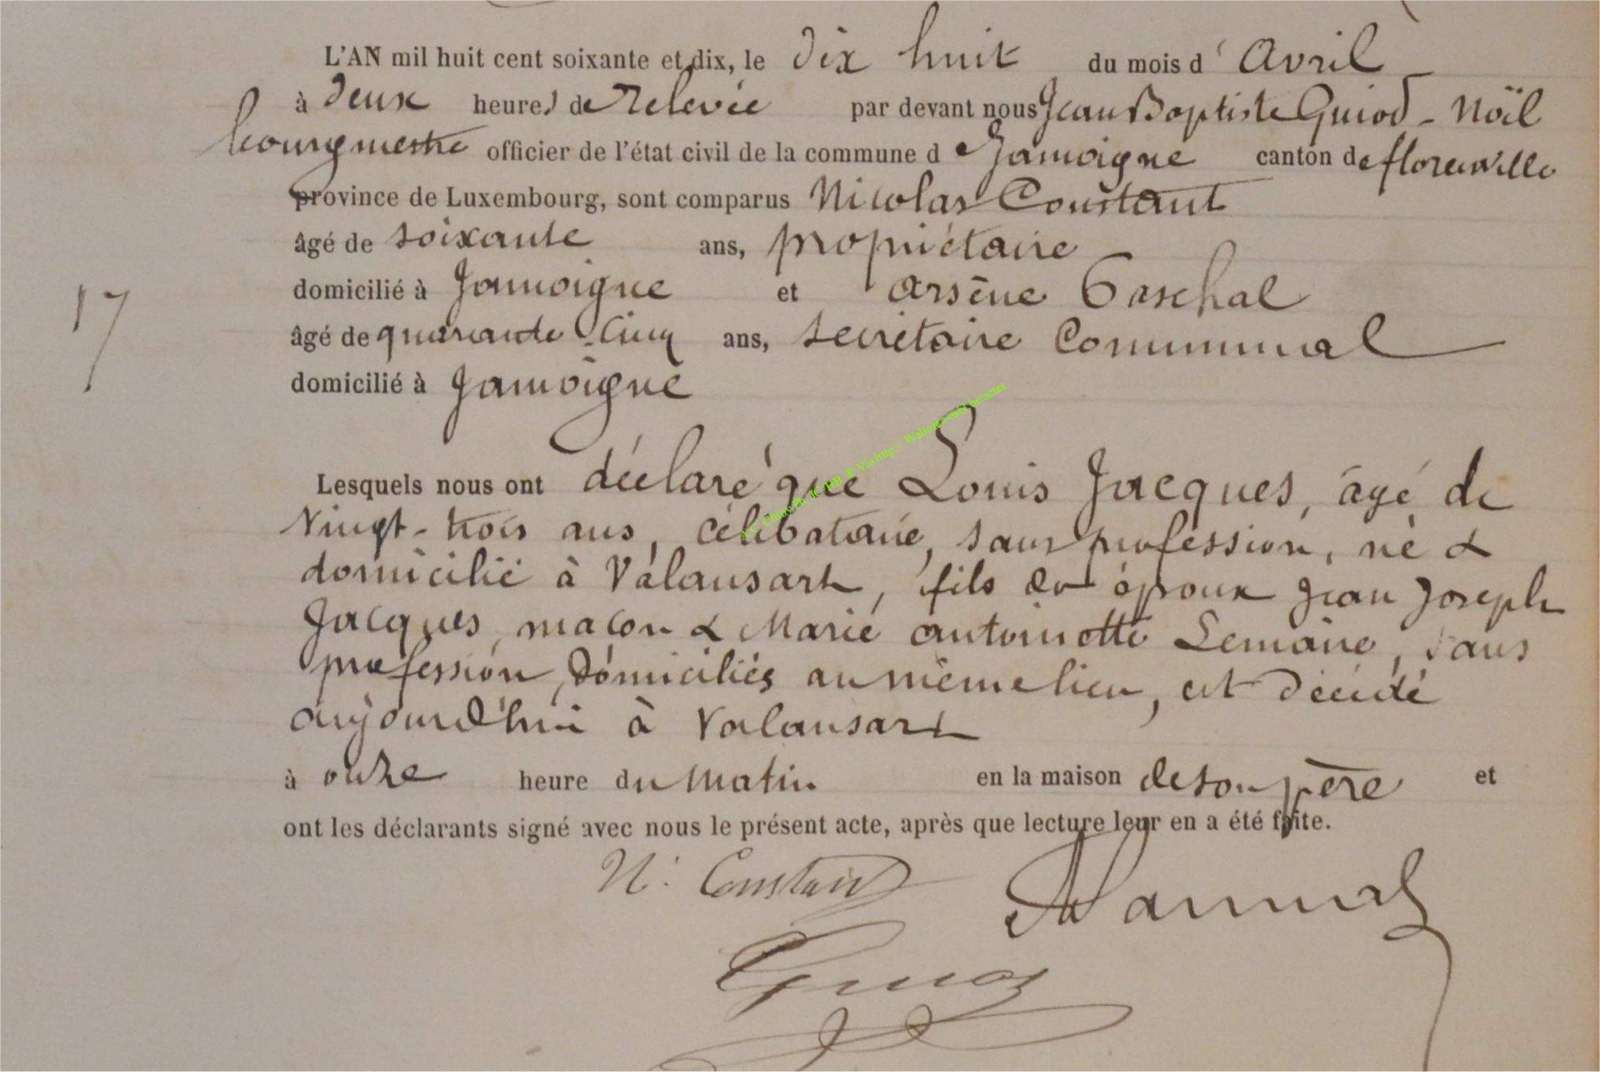 L'AN mil huit cent soixante et dix, le dix huit du mois d' Avril
à deux heures de relevée par devant nous Jean Baptiste Guiod - Noïl
bourgmestre officier de l'état civil de la commune de Jamoigne canton de florenville
province de Luxembourg, sont comparus Nicolas Constant
âgé de soixante ans, propriétaire
domicilié à Jamoigne et arsène Paschal
17
âgé de quarante-cinq ans, secrétaire Communal
domicilié à Jamoigne
Lesquels nous ont déclaré que Louis Jacques, âgé de
vingt-trois ans, célibataire, sans profession, né &
domicilié à Valansart, fils des époux Jean Joseph
Jacques, maçon & Marie antoinette Lemaire, sans
profession, domiciliés au même lieu, est décédé
aujourd'hui à Valansart
à onze heure du matin en la maison de son père et
ont les déclarants signé avec nous le présent acte, après que lecture leur en a été faite.
N. Constant